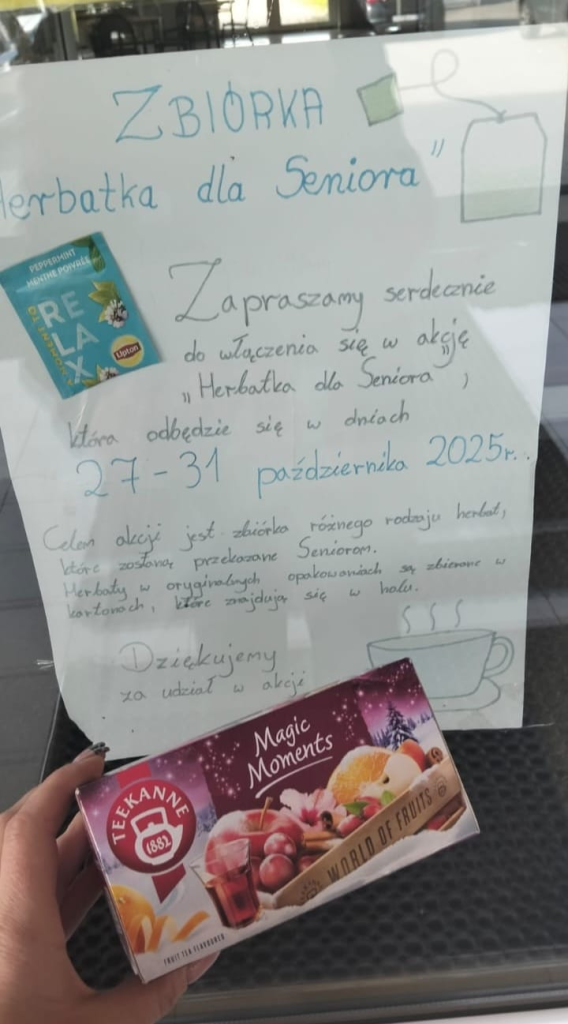 ZBIÓRKA
Herbatka dla Seniora"
PEPPERMINT
MENTHE POIVRÉE
RELAX
Lipton
Zapraszamy serdecznie
do włączenia się w akcję
„Herbatka dla Seniora",
która odbędzie się w dniach
27-31 października 2025r.
Celem akcji jest zbiórka różnego rodzaju herbat,
które zostaną przekazane Seniorom.
Herbaty w oryginalnych opakowaniach są zbierane w
kartonach, które znajdują się w holu.
Dziękujemy
za udział w akcji
Magic
Moments
TEEKANNE
1882
WORLD OF FRUITS
FRUIT TEA FLAVOURED